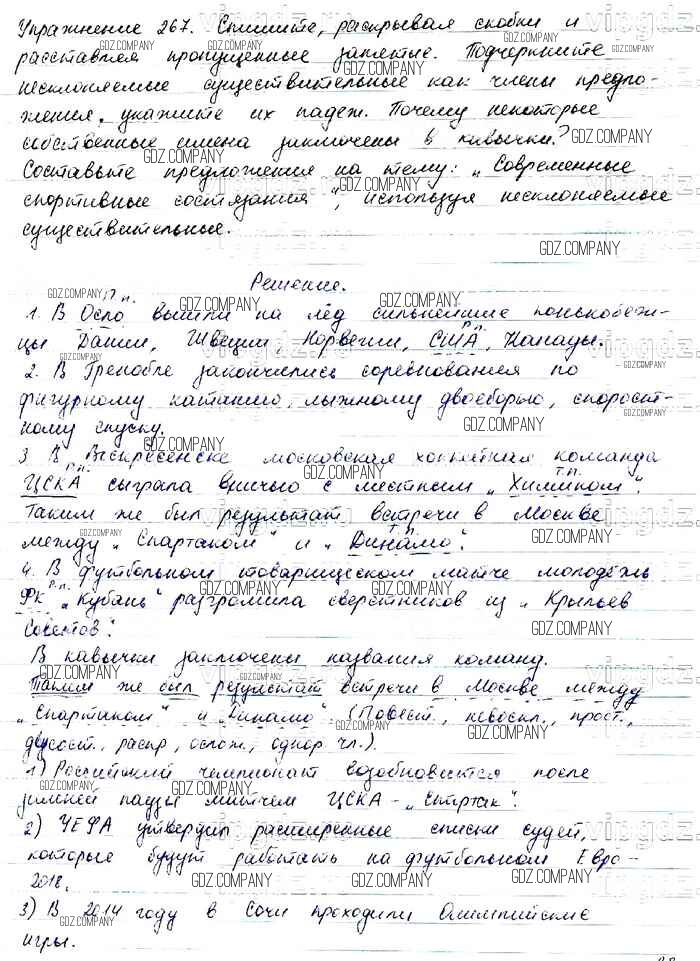 Упражнение 267. Спишите, раскрывая скобки и
расставляя пропущенные запятые. Подчеркните
несклоняемые существительные как члены предло-
жения, укажите их падеж. Почему некоторые
собственные имена заключены в кавычки?
Составьте предложения на тему: „Современные
спортивные состязания", используя несклоняемые
существительные.
Решение.
П.п.
1. В Осло вышли на лёд сильнейшие конькобеж-
Р.п.
цы Дании, Швеции, Норвегии, США, Канады.
2. В Гренобле закончились соревнования по
фигурному катанию, лыжному двоеборью, скорост-
ному спуску.
3 В Воскресенске московская хоккейная команда
Р.п. Т.п.
ЦСКА сыграла вничью с местным „Химиком".
Таким же был результат встречи в Москве
Т.п.
между „Спартаком" и „Динамо".
4. В футбольном товарищеском матче молодёжь
Р.п.
ФК „Кубань" разгромила сверстников из „Крыльев
Советов".
В кавычки заключены названия команд.
Таким же был результат встречи в Москве между
„Спартаком" и „Динамо" (Повест., невоскл., прост.,
двусост., распр, ослож., однор чл.).
1) Российский чемпионат возобновится после
зимней паузы матчем ЦСКА - „Спартак".
2) УЕФА утвердил расширенные списки судей,
которые будут работать на футбольном Евро-
2018.
3) В 2014 году в Сочи проходили Олимпийские
игры.
GDZ.COMPANY
vipgdz.ru